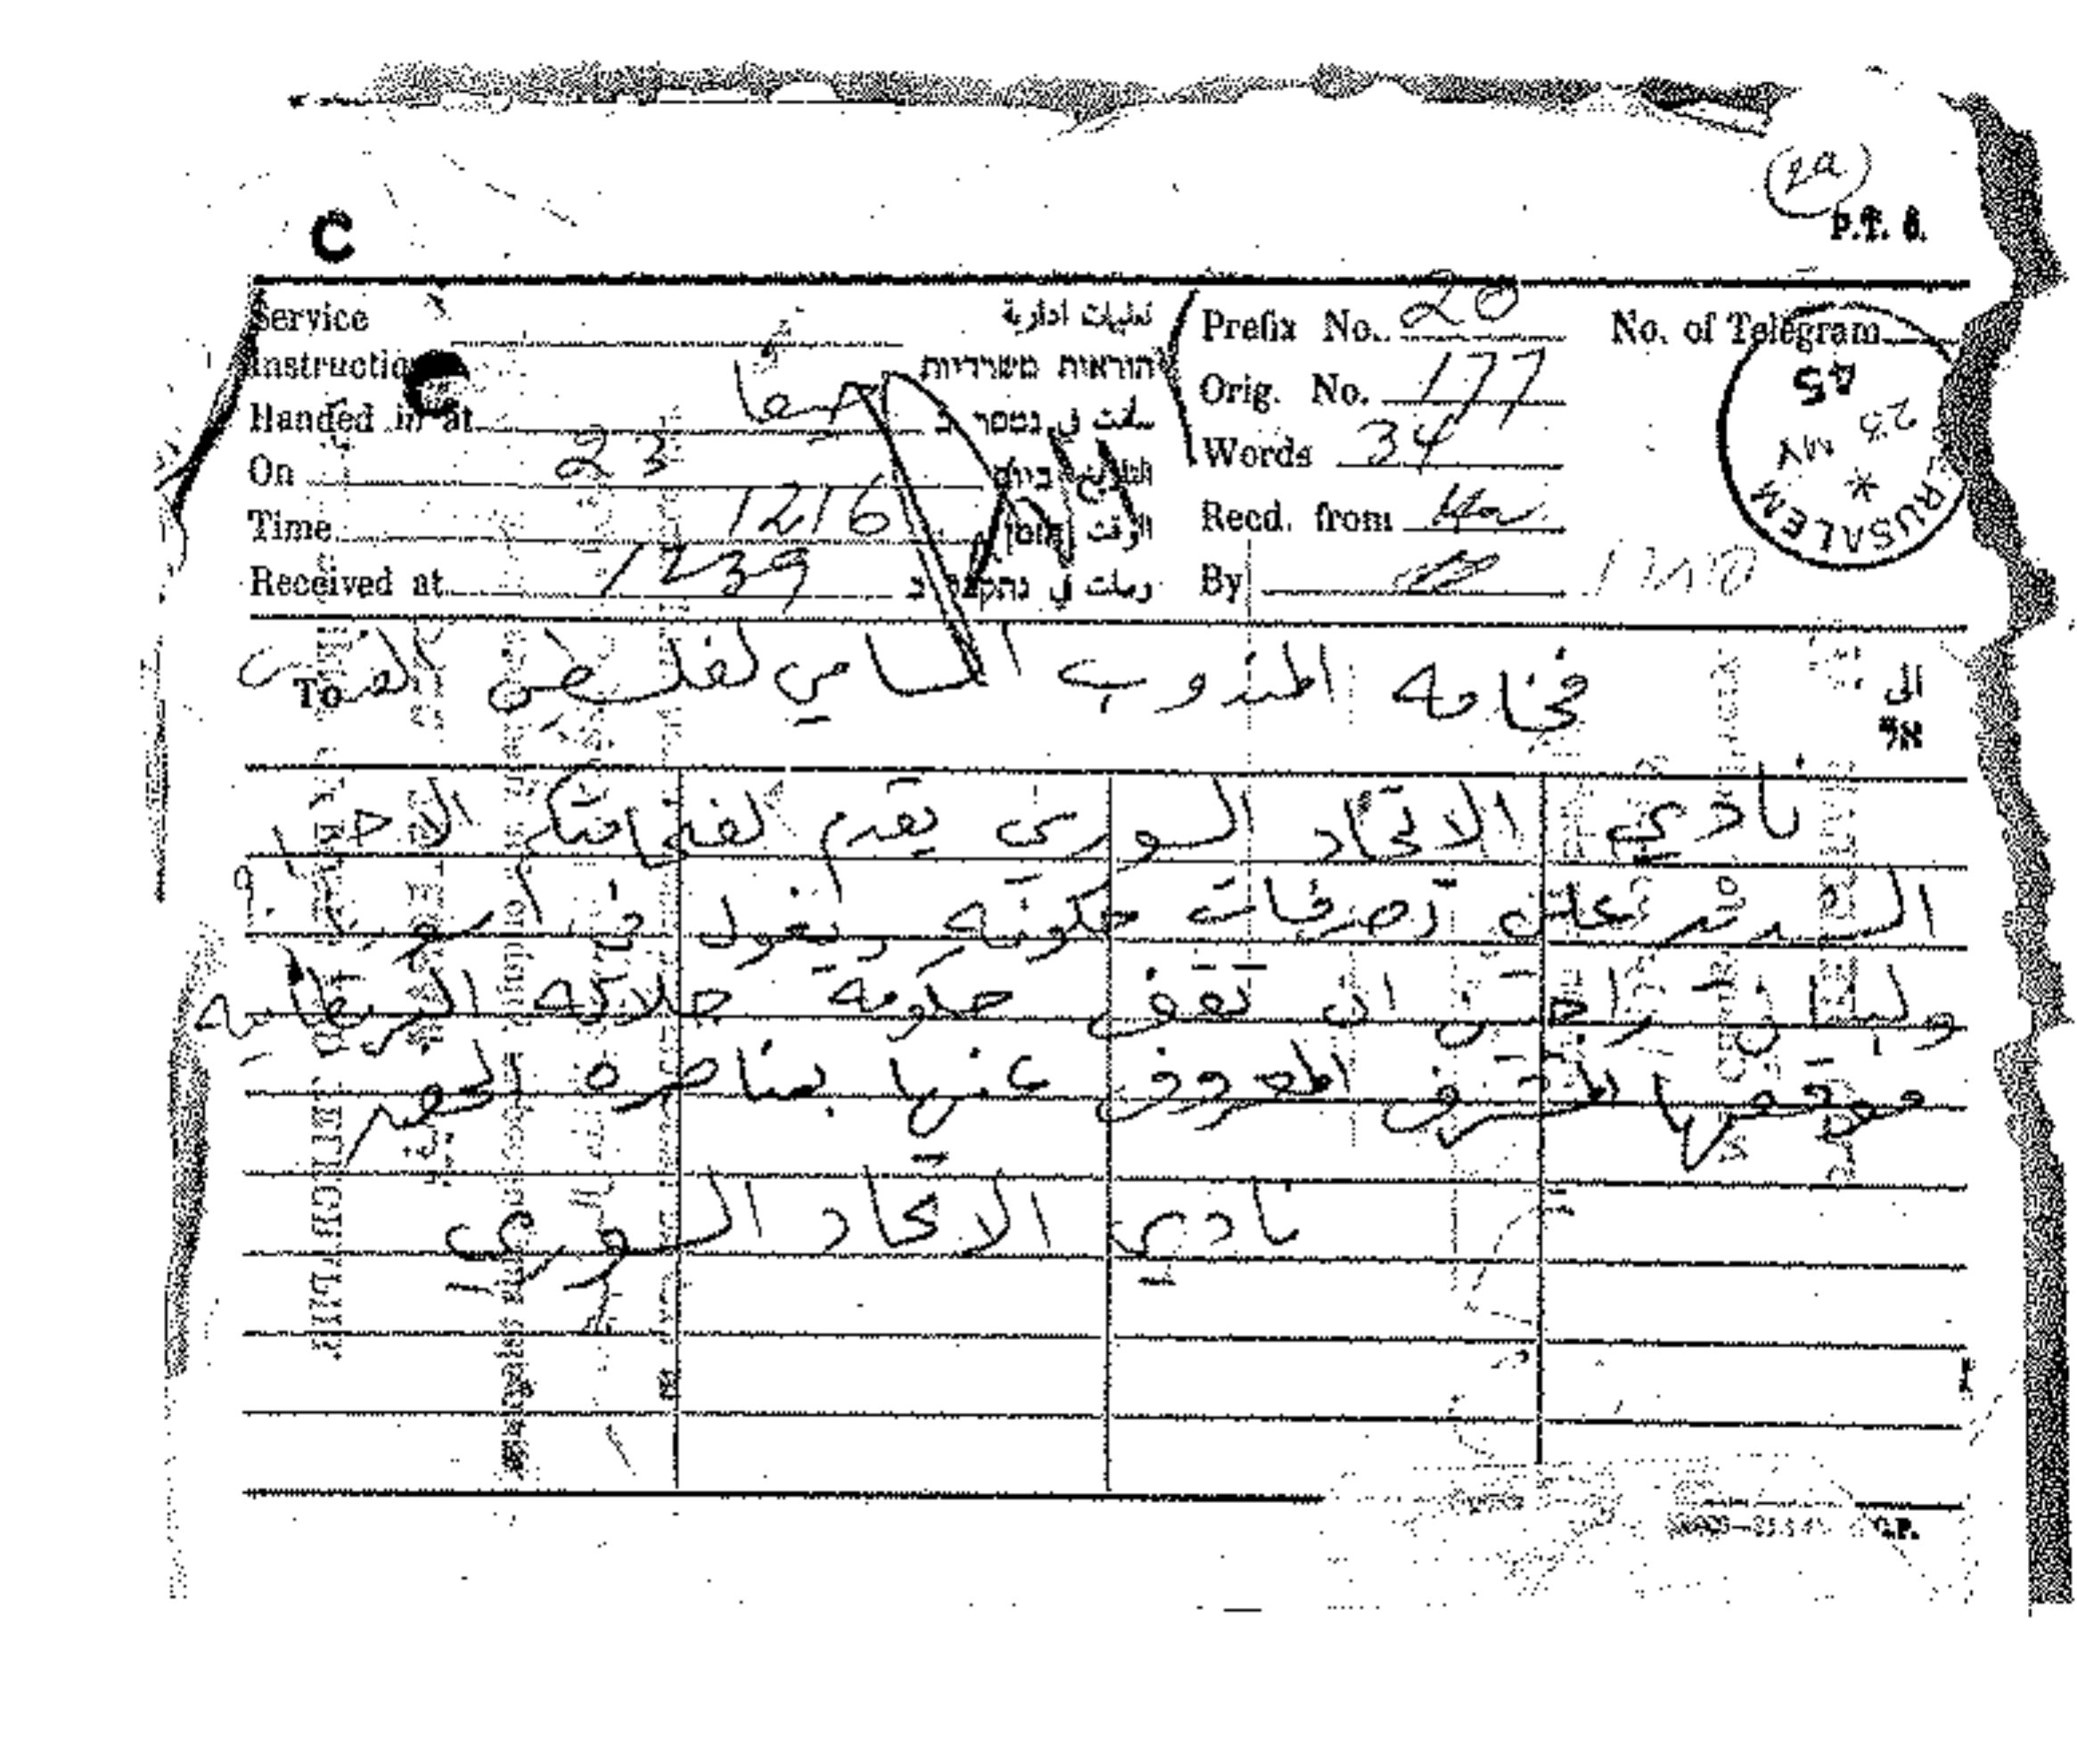 2a
P.T. 6.
C
Service تعليمات ادارية
Instructions הוראות משרדיות
Prefix No. 20
No. of Telegram
Orig. No. 177
Handed in at حيفا سلمت في נמסר ב
Words 34
On 23 التاريخ ביום
Recd. from Ha
Time 1216 الوقت הזמן
Received at 1239 وصلت في נתקבל ב
By
JERUSALEM
23 MY
45
To فخامه المندوب السامي لفلسطين القدس الى אל
نادي الاتحاد السوري يقدم لفخامتكم الاحتجاج
الشديد على تصرفات حكومة ديغول في سوريا
ولبنان راجين ان تقف حكومة جلالته البريطانيه
موقفها المشرف المعروف عنها بمناصره
نادي الاتحاد السوري
G.P.